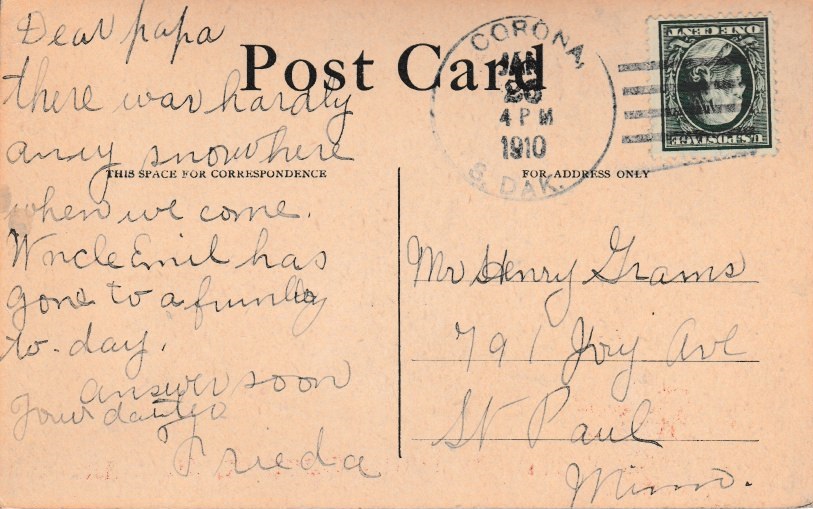 Dear papa
Post Card
there was hardly
anny snow here
THIS SPACE FOR CORRESPONDENCE
when we come.
Uncle Emil has
gone to a
to-day.
answer soon
Your
Frieda
CORONA,
JAN
4 PM
1910
S. DAK.
U.S. POSTAGE
ONE CENT
FOR ADDRESS ONLY
Mr Henry Grams
791 Ivy Ave
St Paul
Minn.